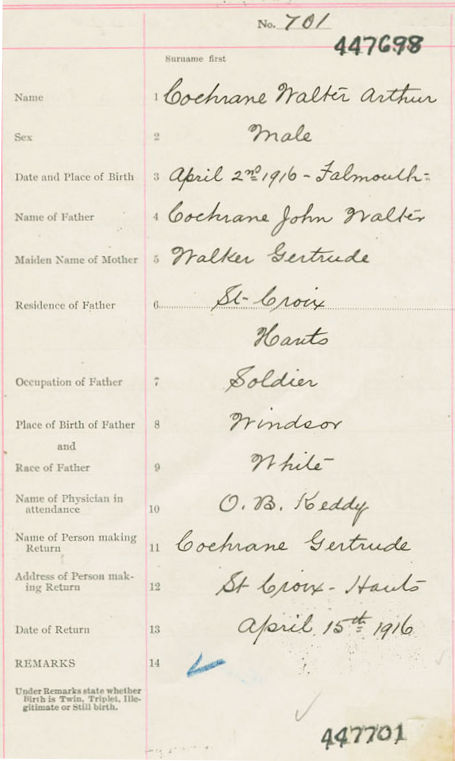 No. 701
447698
Surname first
Name 1 Cochrane Walter Arthur
Sex 2 Male
Date and Place of Birth 3 April 2nd 1916 - Falmouth -
Name of Father 4 Cochrane John Walter
Maiden Name of Mother 5 Walker Gertrude
Residence of Father 6 St-Croix
Hants
Occupation of Father 7 Soldier
Place of Birth of Father 8 Windsor
and
Race of Father 9 White
Name of Physician in
attendance 10 O. B. Keddy
Name of Person making
Return 11 Cochrane Gertrude
Address of Person mak-
ing Return 12 St Croix - Hants
Date of Return 13 April 15th 1916
REMARKS 14
Under Remarks state whether
Birth is Twin, Triplet, Ille-
gitimate or Still birth.
447701